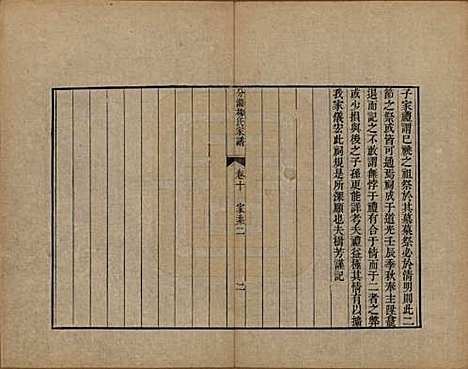 子家禮謂已祧之祖祭於其墓墓祭必於清明則此二
節之祭或皆可通焉祠成于道光壬辰季秋奉主陞龕
退而記之不敢謂無悖于禮有合于情而于二者之弊
或少損與後之子孫更能詳考夫禮益極其情有以擴
我家儀宏此祠規是所深願也夫樹芳謹記
分湖柳氏家譜
卷十
家乘二
二